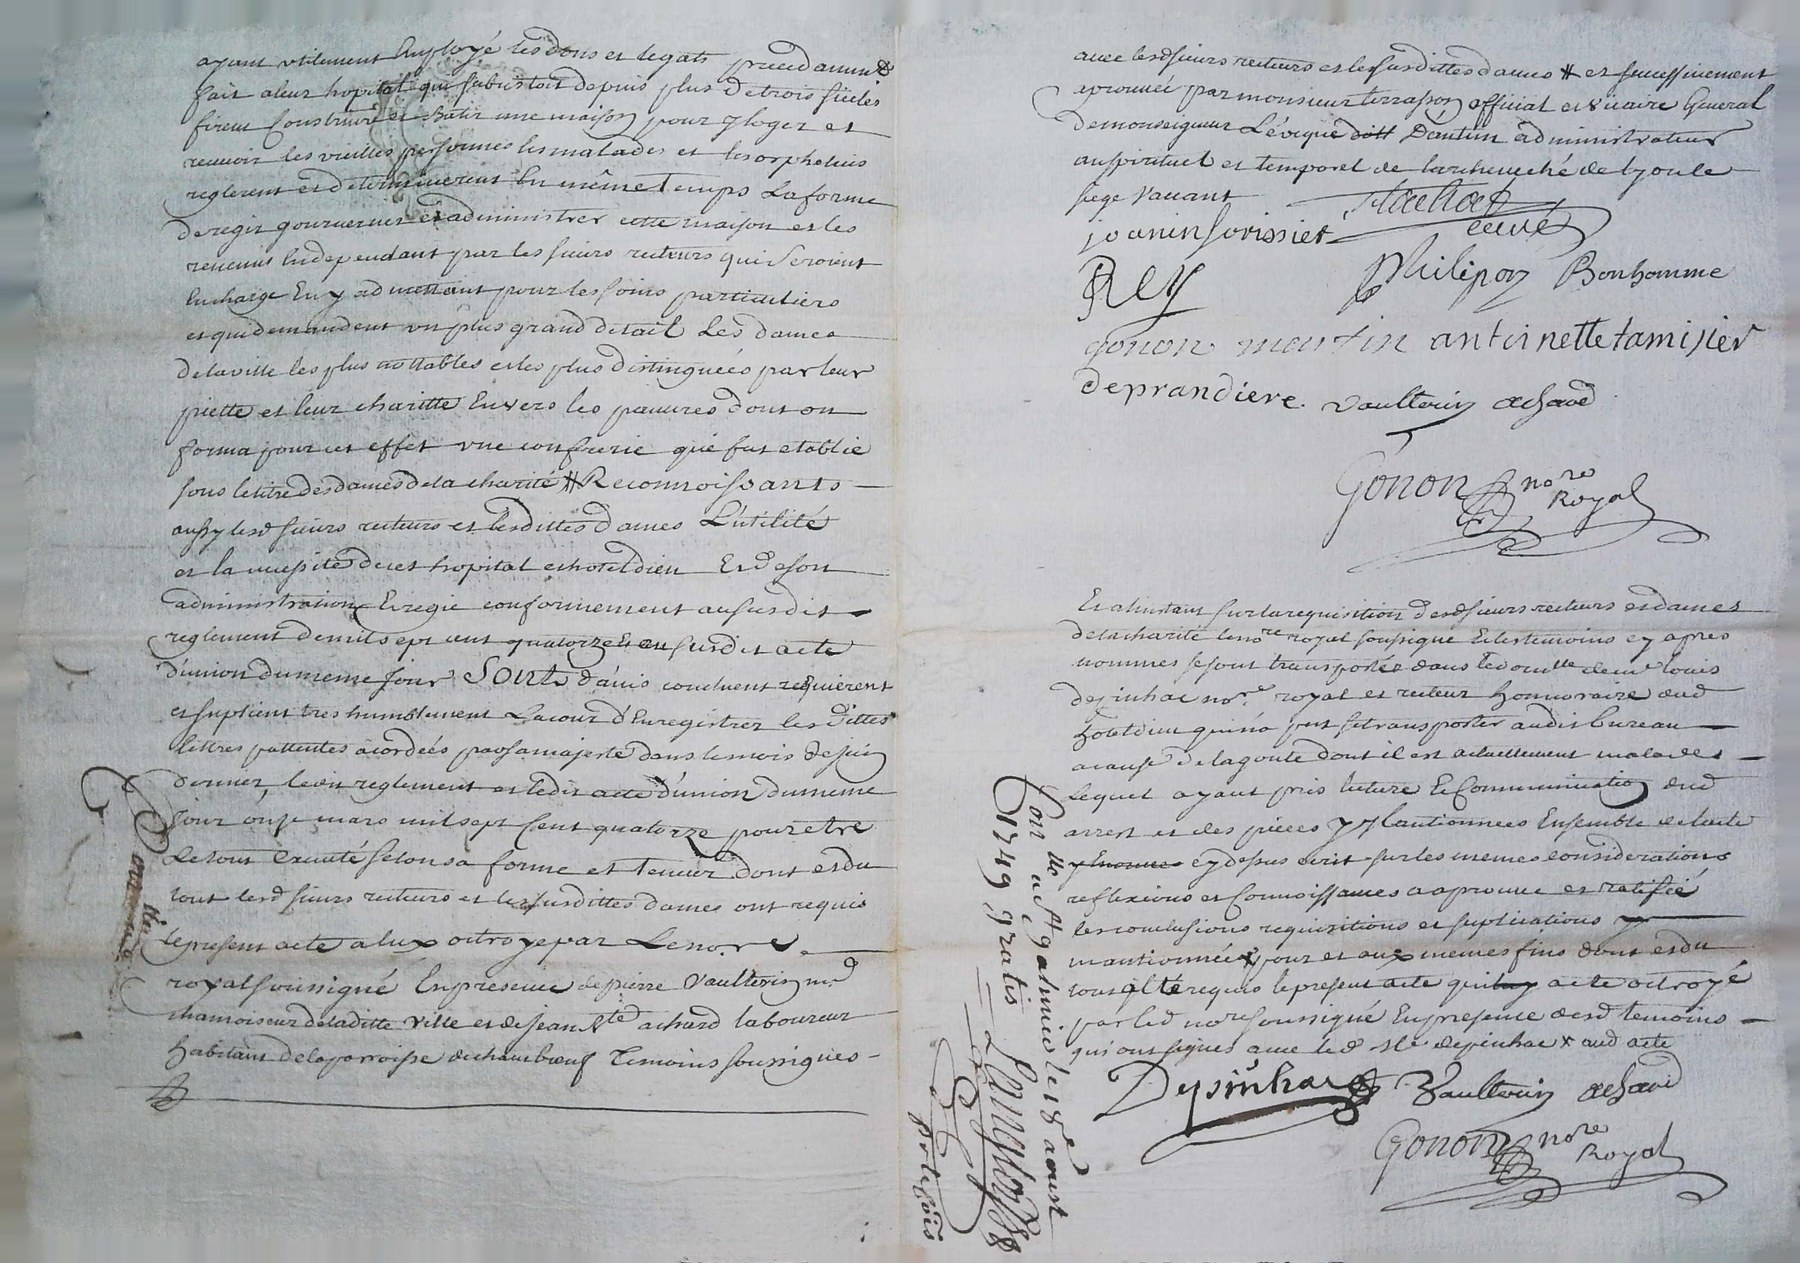 ayant utilement Employé les dons et legats precedamm.t
fait a leur hopital qui subsistoit depuis plus de trois siecles
firent Construire et batir une maison pour y loger et
recevoir les vieilles personnes les malades et les orphelins
reglerent et determinerent En même temps La forme
de regir gouverner et administrer cette maison et les
revenus Independant par les sieurs recteurs qui seroient
En charge En y admettant pour les soins particuliers
et qui demandent un plus grand detail Les dames
de la ville les plus nottables et les plus distinguées par leur
piette et leur charitté Envers les pauvres dont on
forma pour cet effet une confrerie qui fut etablie
sous le titre des dames de la charité # Reconnoissants
aussy lesd sieurs recteurs et lesdittes dames L'utilité
et la necessité de cet hopital et hotel dieu Et de son
administration Et regie conformement au susdit
reglement de mil sept cent quatorze Et au susdit acte
d'union du meme jour Sont d'avis concluent requierent
et suplient tres humblement La cour d'Enregistrer lesdittes
lettres patentes acordeés par sa majesté dans le mois de juin
dernier, ledit reglement et ledit acte d'union du meme
jour onze mars mil sept Cent quatorze pour etre
Le tout Executé selon sa forme et teneur dont et du
tout lesd sieurs recteurs et lessusdittes dames ont requis
le present acte a Eux octroye par Le nore
royal soussigné En presence de pierre Vaulterin md
chamoiseur de laditte Ville et de Jean Bte achard laboureur
habitant de la parroisse de chambœuf Temoins soussignes
avec lesd sieurs recteurs et lessusdittes dames # et successivement
aprouvée par monsieur terrasson official et vicaire General
de monseigneur L'évêque d'autun administrateur
au spirituel et temporel de l'archeveché de Lyon le
siege Vacant
joanin sorissier curé
Rey Philipon Bonhomme
gonon montin antoinette tamisier
deprandiere. Vaulterin achard
Gonon nore
Royal
Et a l'instant sur la requisition desd sieurs recteurs et dames
de la charité le nore royal soussigné Et les temoins cy apres
nommes se sont transportés dans le domlle de me louis
depinhac nore royal et recteur honnoraire dud
hotel dieu qui n'a peut se transporter audit bureau
a cause de la goute dont il est actuellement malade
Lequel ayant pris lecture Et Communication dud
arrest et des pieces y mantionnees Ensemble de l'acte
cy dessus ecrit sur les memes considerations
reflexions et Connoissances a aprouvé et ratifié
les conclusions requisitions et suplications y
mantionneés pour et aux memes fins dont et du
tout il a requis le present acte
par led nore soussigné En presence desd temoins
qui ont signes avec led me depinhac aud acte
Depinhac Vaulterin achard
Gonon nore
Royal
Con.lle a St galmier le 18e aoust
1749 gratis
Langlois